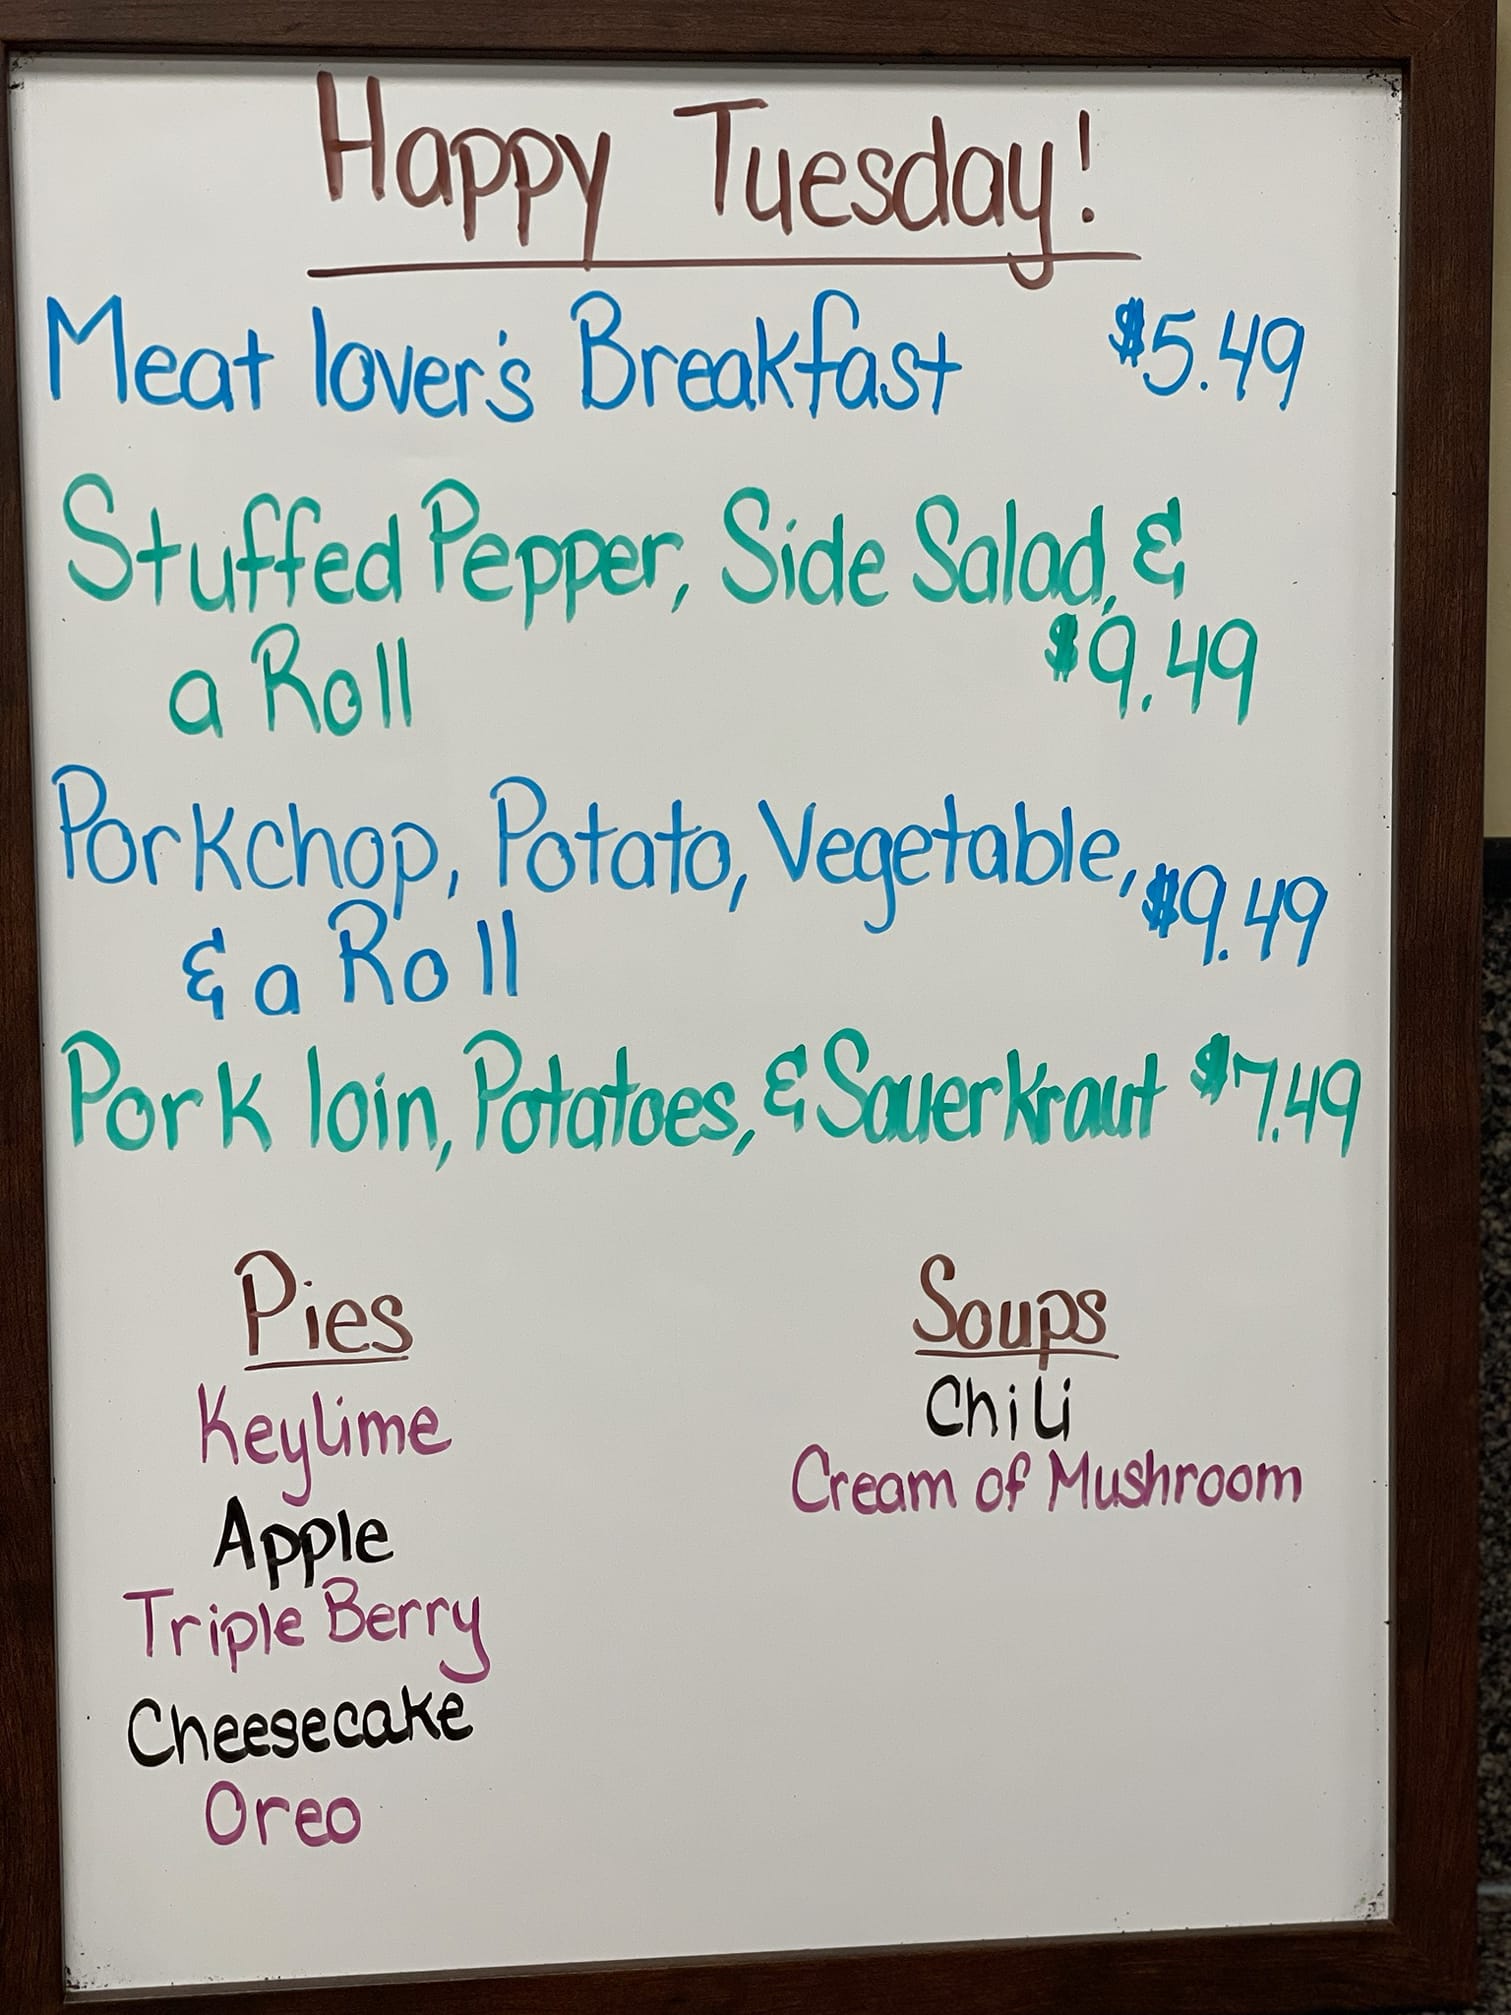 Happy Tuesday!
Meat lover's Breakfast $5.49
Stuffed Pepper, Side Salad, &
a Roll $9.49
Porkchop, Potato, Vegetable, $9.49
& a Roll
Pork loin, Potatoes, & Sauerkraut $7.49
Pies
Keylime
Apple
Triple Berry
Cheesecake
Oreo
Soups
Chili
Cream of Mushroom